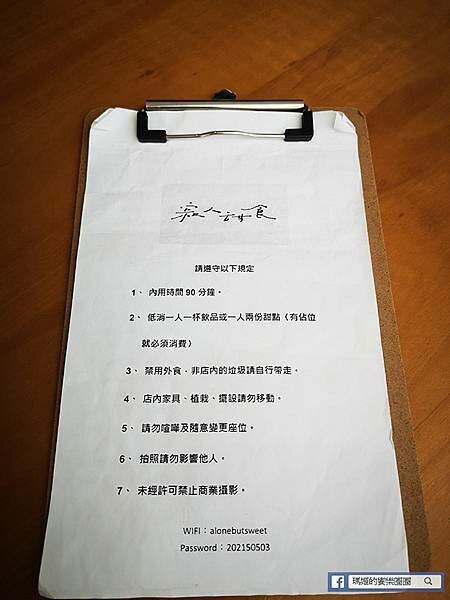 寂人甜食
請遵守以下規定
1、 內用時間 90 分鐘。
2、 低消一人一杯飲品或一人兩份甜點（有佔位
就必須消費）
3、 禁用外食，非店內的垃圾請自行帶走。
4、 店內家具、植栽、擺設請勿移動。
5、 請勿喧嘩及隨意變更座位。
6、 拍照請勿影響他人。
7、 未經許可禁止商業攝影。
WIFI：alonebutsweet
Password：202150503
瑪姬的饗樂圈圈